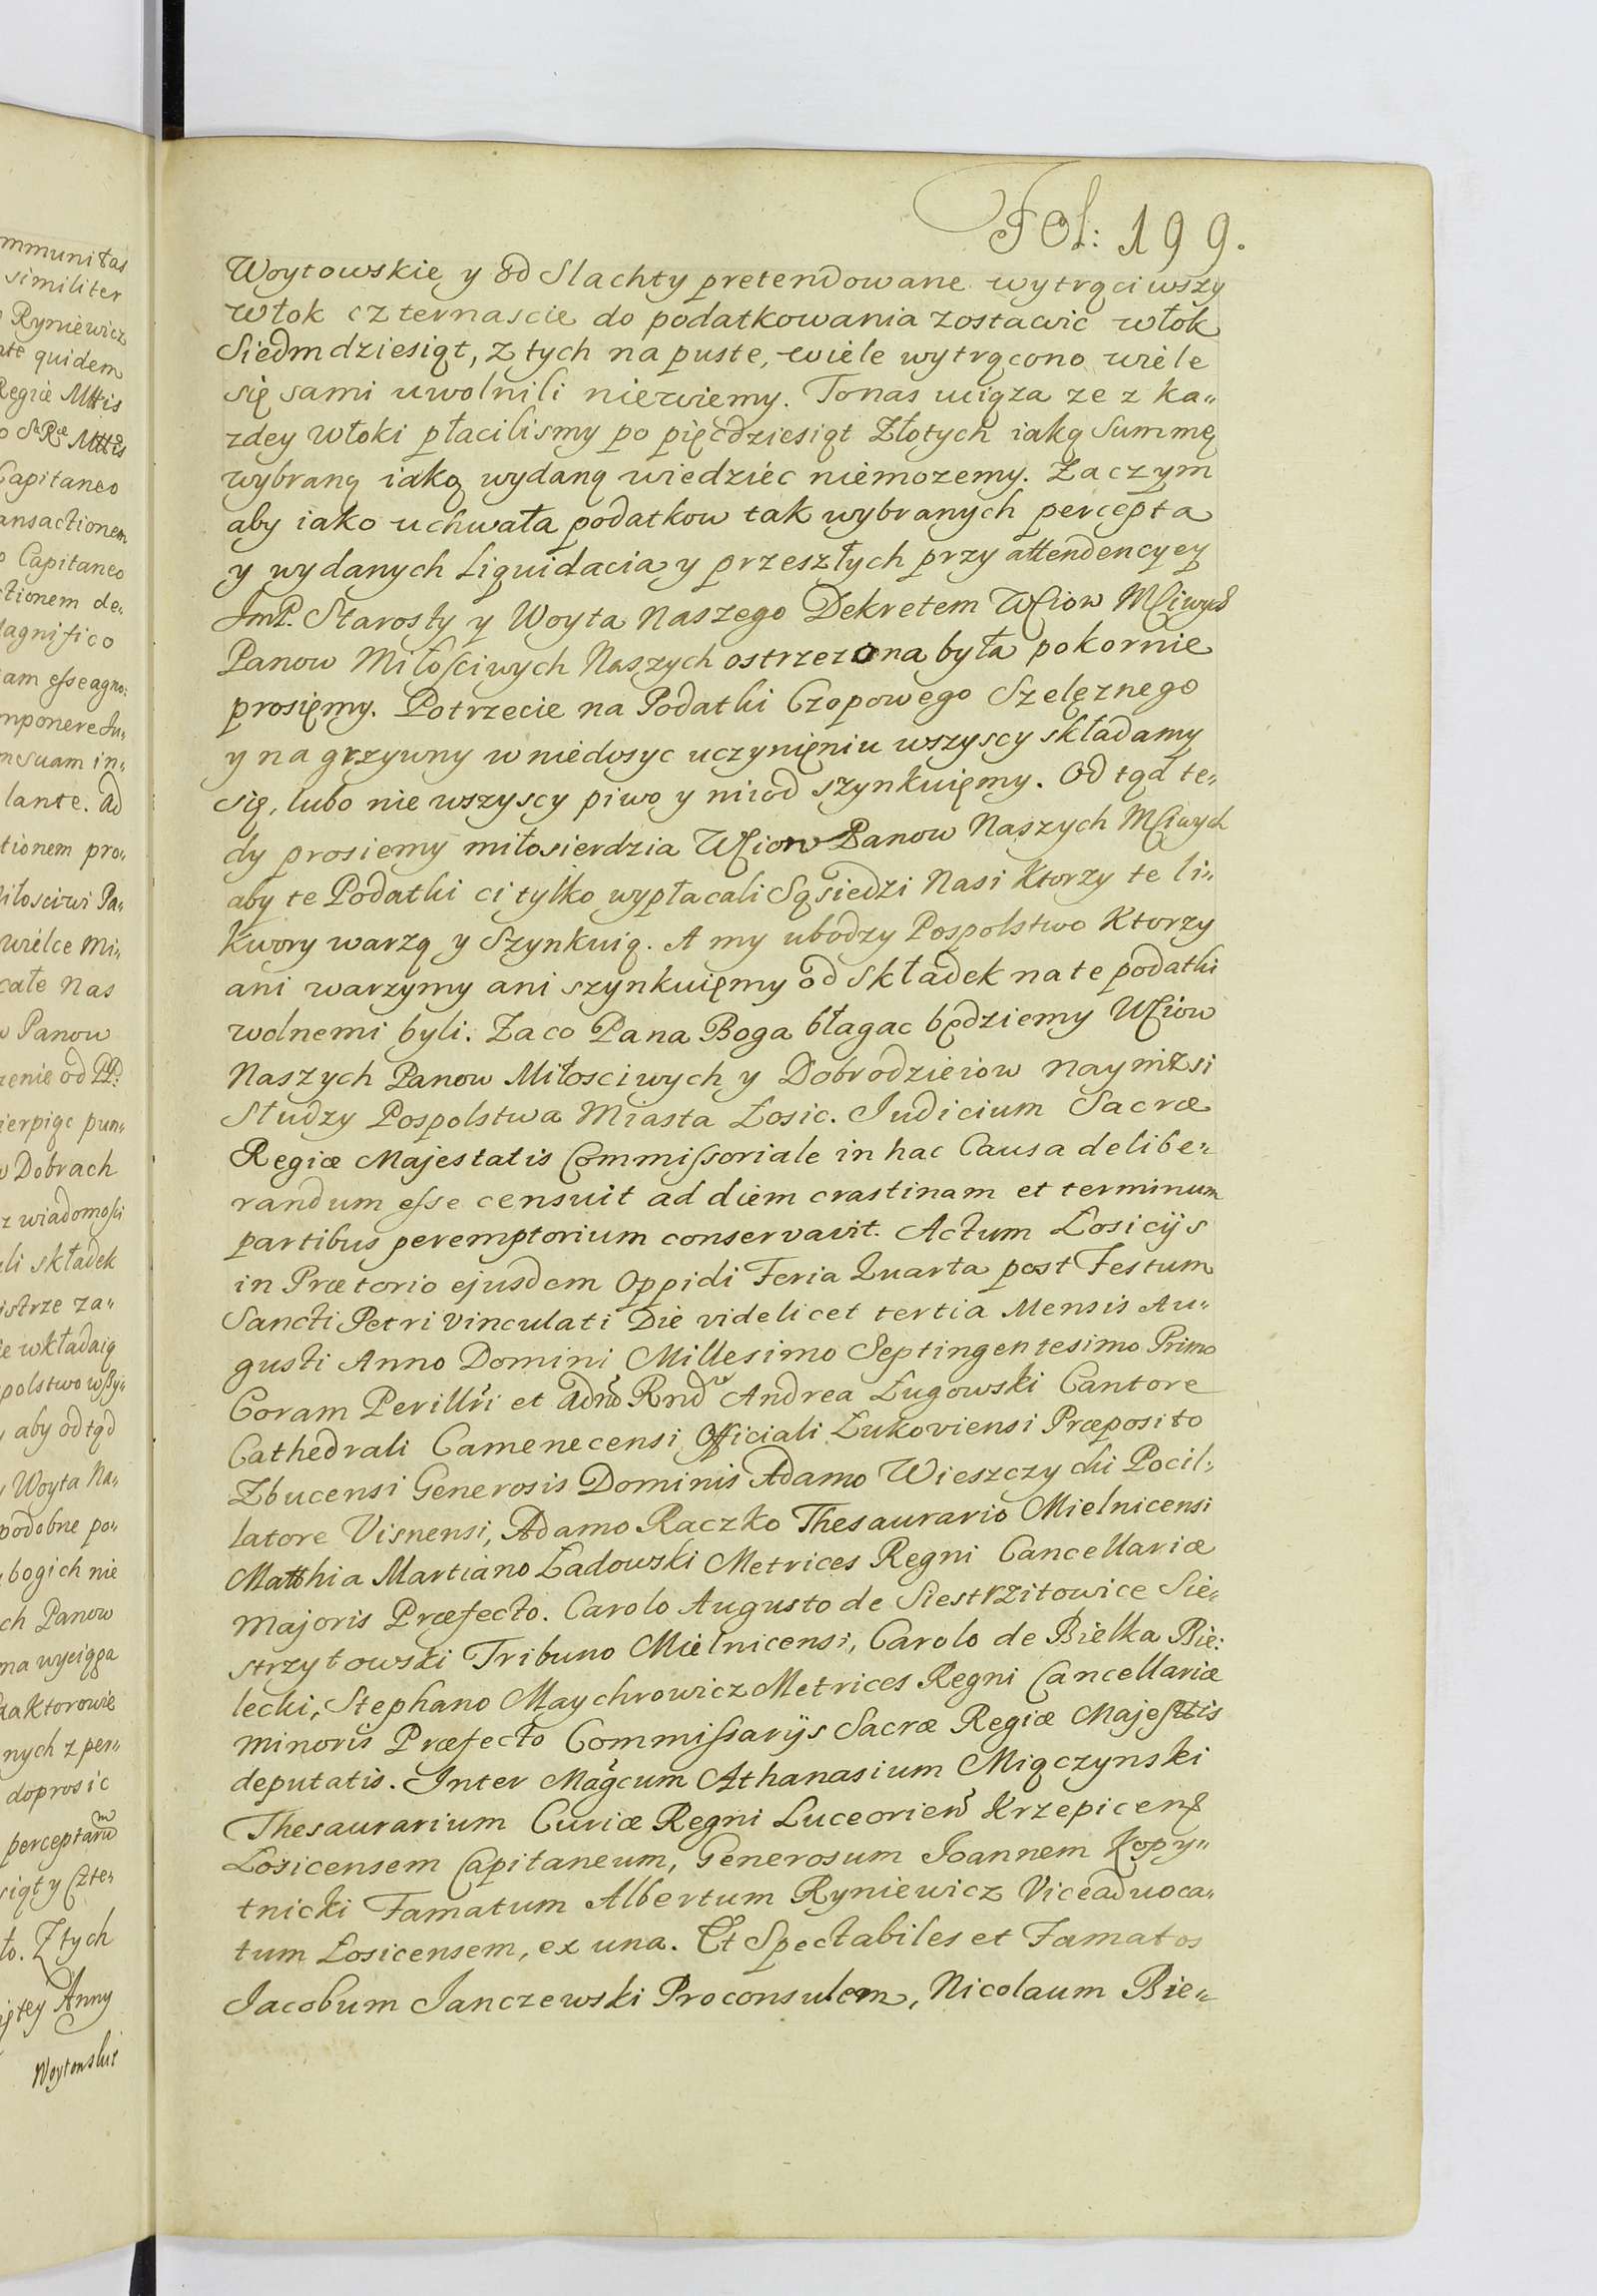 mmunitas
similiter
Ryniewicz
quidem
Regiæ Mttis
Mttis
Capitaneo
ansactionem
Capitaneo
ctionem de„
agnifico
am esse agno:
mponere
m suam in„
lante. Ad
tionem pro„
iłosciwi Pa„
wielce Mi„
całe Nas
Panow
zenie od PP:
ierpiąc pun„
w Dobrach
z wiadomosci
li składek
istrze za„
wkładaią
polstwo wszy„
aby odtąd
Woyta Na„
podobne po„
bogich nie
ch Panow
ma wyciąga
aktorowie
nych z per„
doprosic
perceptarũ
siąt y Czte„
to. Z tych
iętey Anny
Woytowskie
Fol: 199.
Woytowskie y od Slachty pretendowane wytrąciwszy
włok czternascie do podatkowania zostawic włok
Siedmdziesiąt, z tych na puste, wiele wytrącono wiele
się sami uwolnili niewiemy. To nas uciąza ze z ka„
zdey włoki płacilismy po pięcdziesiąt Złotych iaką Summę
wybraną iaką wydaną wiedziéc niemozemy. Zaczym
aby iako uchwała podatkow tak wybranych percepta
y wydanych Liquidacia y przeszłych przy attendencyey
JmP. Starosty y Woyta Naszego Dekretem Wſſciow Mſſciwych
Panow Miłosciwych Naszych ostrzezona była pokornie
prosięmy. Potrzecie na Podatki Czopowego Szelęznego
y na grzywny w niedosyc uczynięniu wszyscy składamy
się, lubo nie wszyscy piwo y miod szynkuięmy. Od tąd te„
dy prosiemy miłosierdzia Wſſciow Panow Naszych Mſſciwych
aby te Podatki ci tylko wypłacali Sąsiedzi Nasi Ktorzy te li„
kwory warzą y Szynkuią. A my ubodzy Pospolstwo Ktorzy
ani warzymy ani szynkuięmy od składek na te podatki
wolnemi byli. Za co Pana Boga błagac będziemy Wſſciow
Naszych Panow Miłosciwych y Dobrodzieiow naynizsi
Słudzy Pospolstwa Miasta Łosic. Judicium Sacræ
Regiæ Majestatis Commissoriale in hac Causa delibe„
randum esse censuit ad diem crastinam et terminum
partibus peremptorium conservavit. Actum Łosicijs
in Prætorio ejusdem Oppidi Feria Quarta post Festum
Sancti Petri Vinculati Die videlicet tertia Mensis Au„
gusti Anno Domini Millesimo Septingentesimo Primo
Coram Perillri et Adndo Rndo Andrea Ługowski Cantore
Cathedrali Camenecensi Officiali Łukoviensi Præposito
Zbucensi Generosis Dominis Adamo Wieszczycki Pocil„
latore Visnensi, Adamo Raczko Thesaurario Mielnicensi
Matthia Martiano Ładowski Metrices Regni Cancellariæ
Majoris Præfecto. Carolo Augusto de Siestrzitowice Sie„
strzytowski Tribuno Mielnicensi, Carolo de Bielka Bie:
lecki, Stephano Maychrowicz Metrices Regni Cancellariæ
minoris Præfecto Commissarijs Sacræ Regiæ Majesttis
deputatis. Inter Magcum Athanasium Miączynski
Thesaurarium Curiæ Regni Luceorien Krzepicens
Łosicensem Capitaneum, Generosum Joannem Kopy„
tnicki Famatum Albertum Ryniewicz Viceadvoca„
tum Łosicensem, ex una. Et Spectabiles et Famatos
Jacobum Janczewski Proconsulem, Nicolaum Bie„